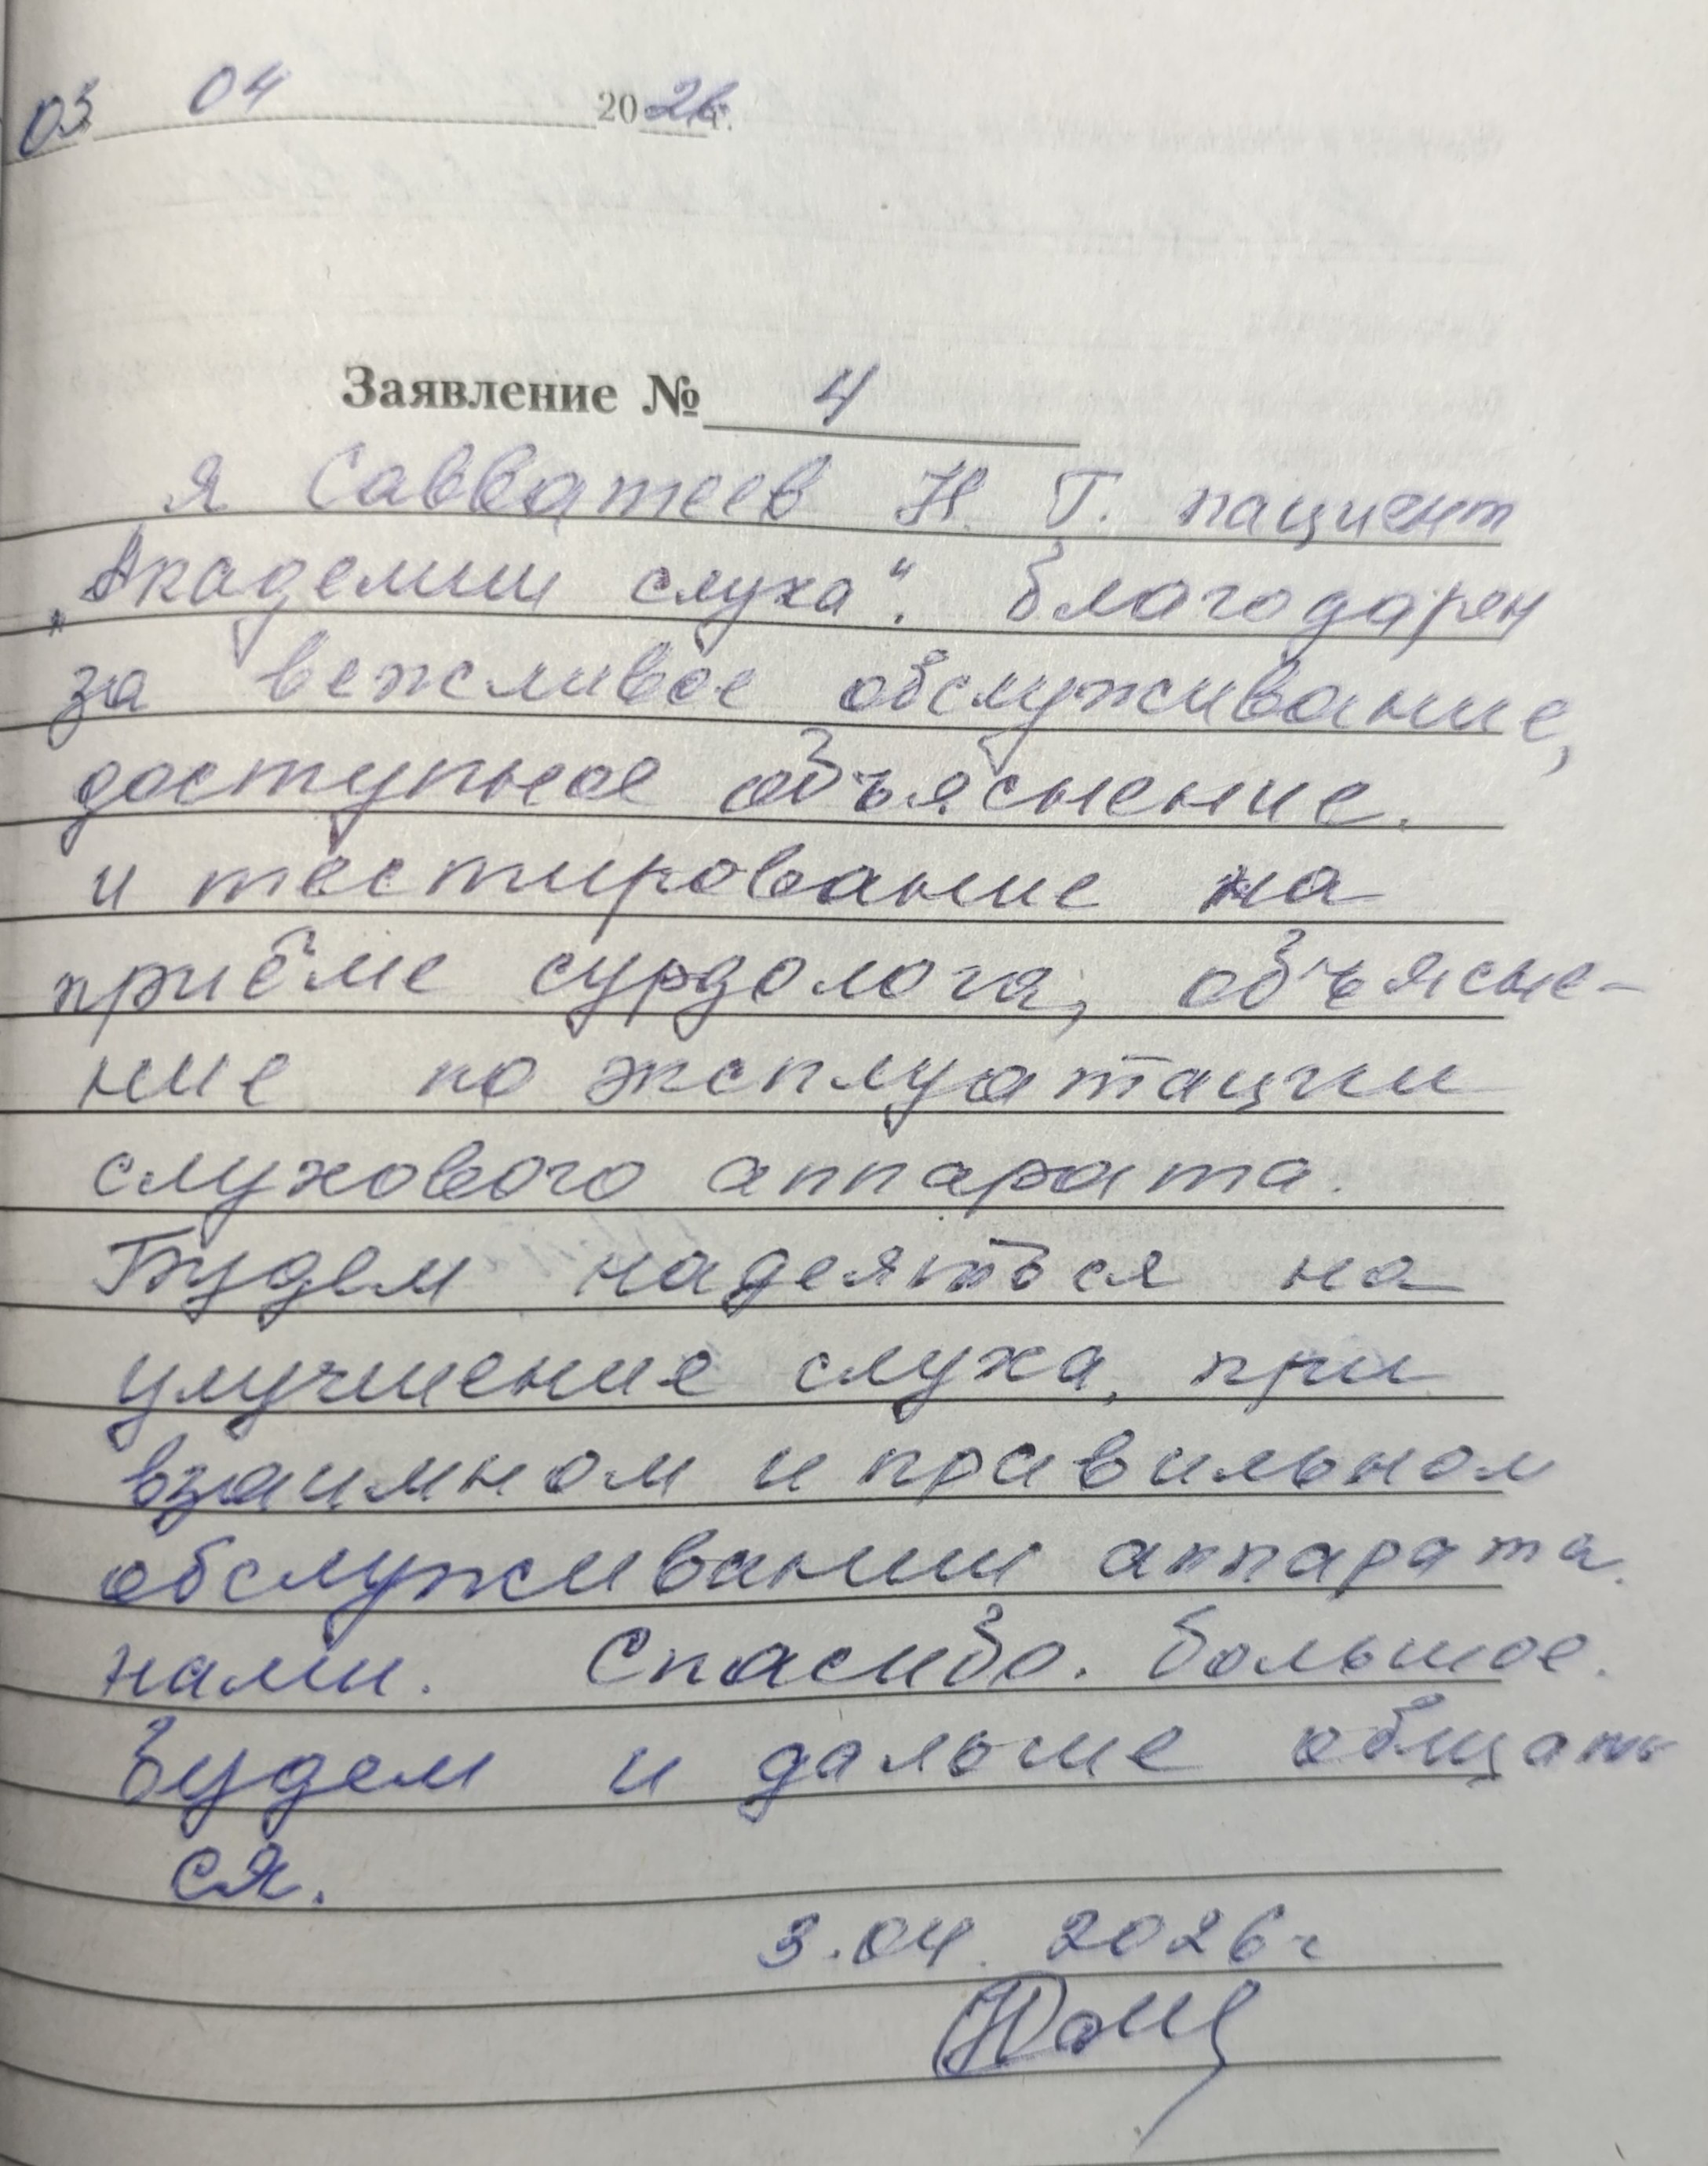 03 04 2026г.
Заявление № 4
я Савватеев Н. Г. пациент
„Академии слуха“. благодарен
за вежливое обслуживание,
доступное объяснение.
и тестирование на
приёме сурдолога, объясне-
ние по эксплуатации
слухового аппарата.
Будем надеяться на
улучшение слуха, при
взаимном и правильном
обслуживании аппарата.
нами. Спасибо. большое.
Будем и дальше общать
ся.
3.04. 2026г